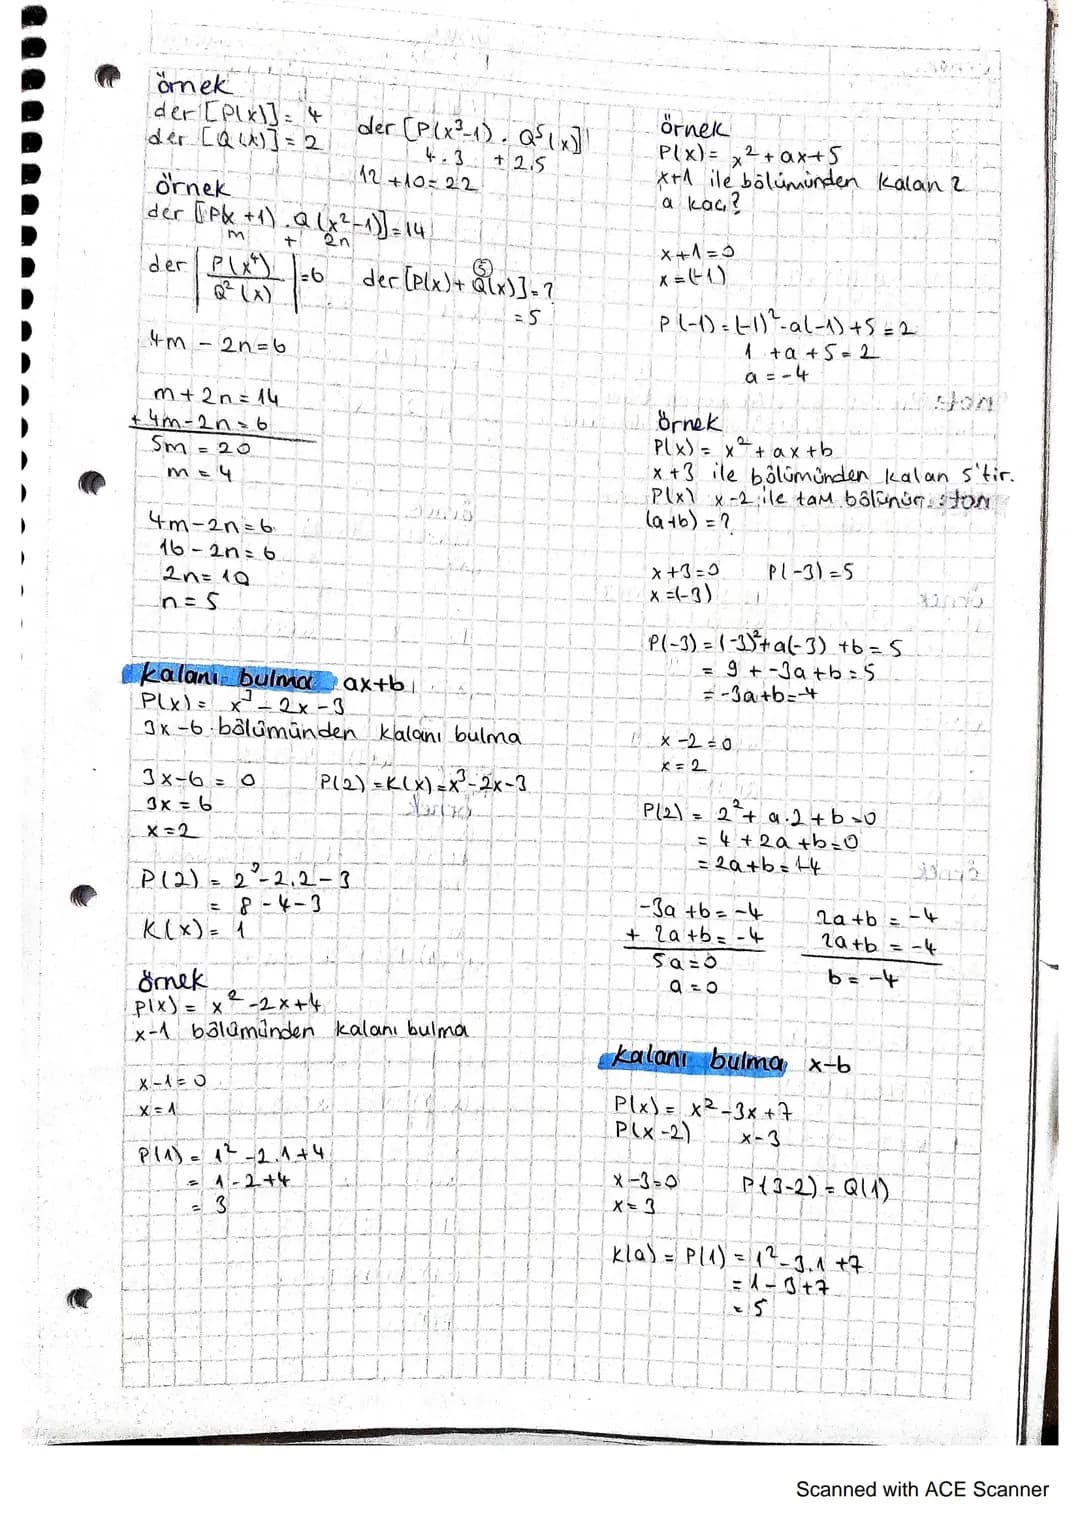 örnek
der [P(x)] = 4
der [Q(x)] = 2
der [P(x³-1) . Q⁵(x)]
4.3 + 2.5
12 + 10 = 22
örnek
der [P(x +1) . Q(x²-1)] = 14
m + 2n
der [P(x⁴) / Q²(x)] = 6
der [P(x) + Q(x)] = ?
5
= 5
4m - 2n = 6
m + 2n = 14
+ 4m - 2n = 6
5m = 20
m = 4
4m - 2n = 6
16 - 2n = 6
2n = 10
n = 5
kalanı bulma ax+b
P(x) = x³ - 2x - 3
3x - 6 bölümünden kalanı bulma
3x - 6 = 0
P(2) = K(x) = x³ - 2x - 3
3x = 6
x = 2
P(2) = 2³ - 2.2 - 3
= 8 - 4 - 3
K(x) = 1
örnek
P(x) = x² - 2x + 4
x-1 bölümünden kalanı bulma
x - 1 = 0
x = 1
P(1) = 1² - 2.1 + 4
= 1 - 2 + 4
= 3
örnek
P(x) = x² + ax + 5
x+1 ile bölümünden kalan 2
a kaç?
x + 1 = 0
x = (-1)
P(-1) = (-1)² - a(-1) + 5 = 2
1 + a + 5 = 2
a = -4
örnek
P(x) = x² + ax + b
x + 3 ile bölümünden kalan 5'tir.
P(x) x-2 ile tam bölünür.
(a+b) = ?
x + 3 = 0 P(-3) = 5
x = (-3)
P(-3) = (-3)² + a(-3) + b = 5
= 9 + -3a + b = 5
= -3a + b = -4
x - 2 = 0
x = 2
P(2) = 2² + a.2 + b = 0
= 4 + 2a + b = 0
= 2a + b = -4
-3a + b = -4
+ 2a + b = -4
5a = 0
a = 0
2a + b = -4
2a + b = -4
b = -4
kalanı bulma x-b
P(x) = x² - 3x + 7
P(x-2) x-3
x - 3 = 0 P(3-2) = Q(1)
x = 3
K(a) = P(1) = 1² - 3.1 + 7
= 1 - 3 + 7
= 5
Scanned with ACE Scanner